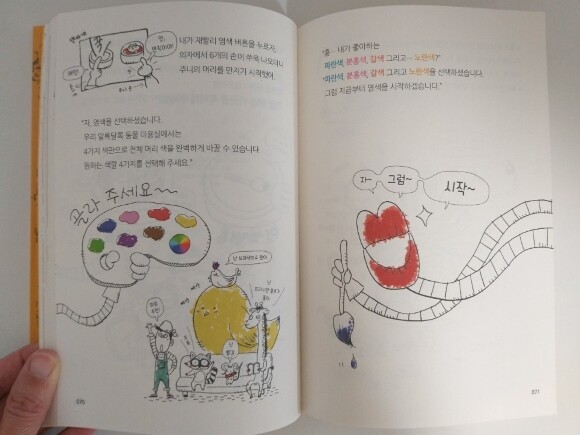 내가 재빨리 염색 버튼을 누르자,
의자에서 6개의 손이 쑤욱 나오더니
주니의 머리를 만지기 시작했어.
"자, 염색을 선택하셨습니다.
우리 알록달록 동물 미용실에서는
4가지 색만으로 전체 머리 색을 완벽하게 바꿀 수 있습니다.
원하는 색깔 4가지를 선택해 주세요."
골라 주세요~
070
"흠… 내가 좋아하는
파란색, 분홍색, 갈색 그리고… 노란색?"
"파란색, 분홍색, 갈색 그리고 노란색을 선택하셨습니다.
그럼 지금부터 염색을 시작하겠습니다."
자~
그럼~
시작~
071